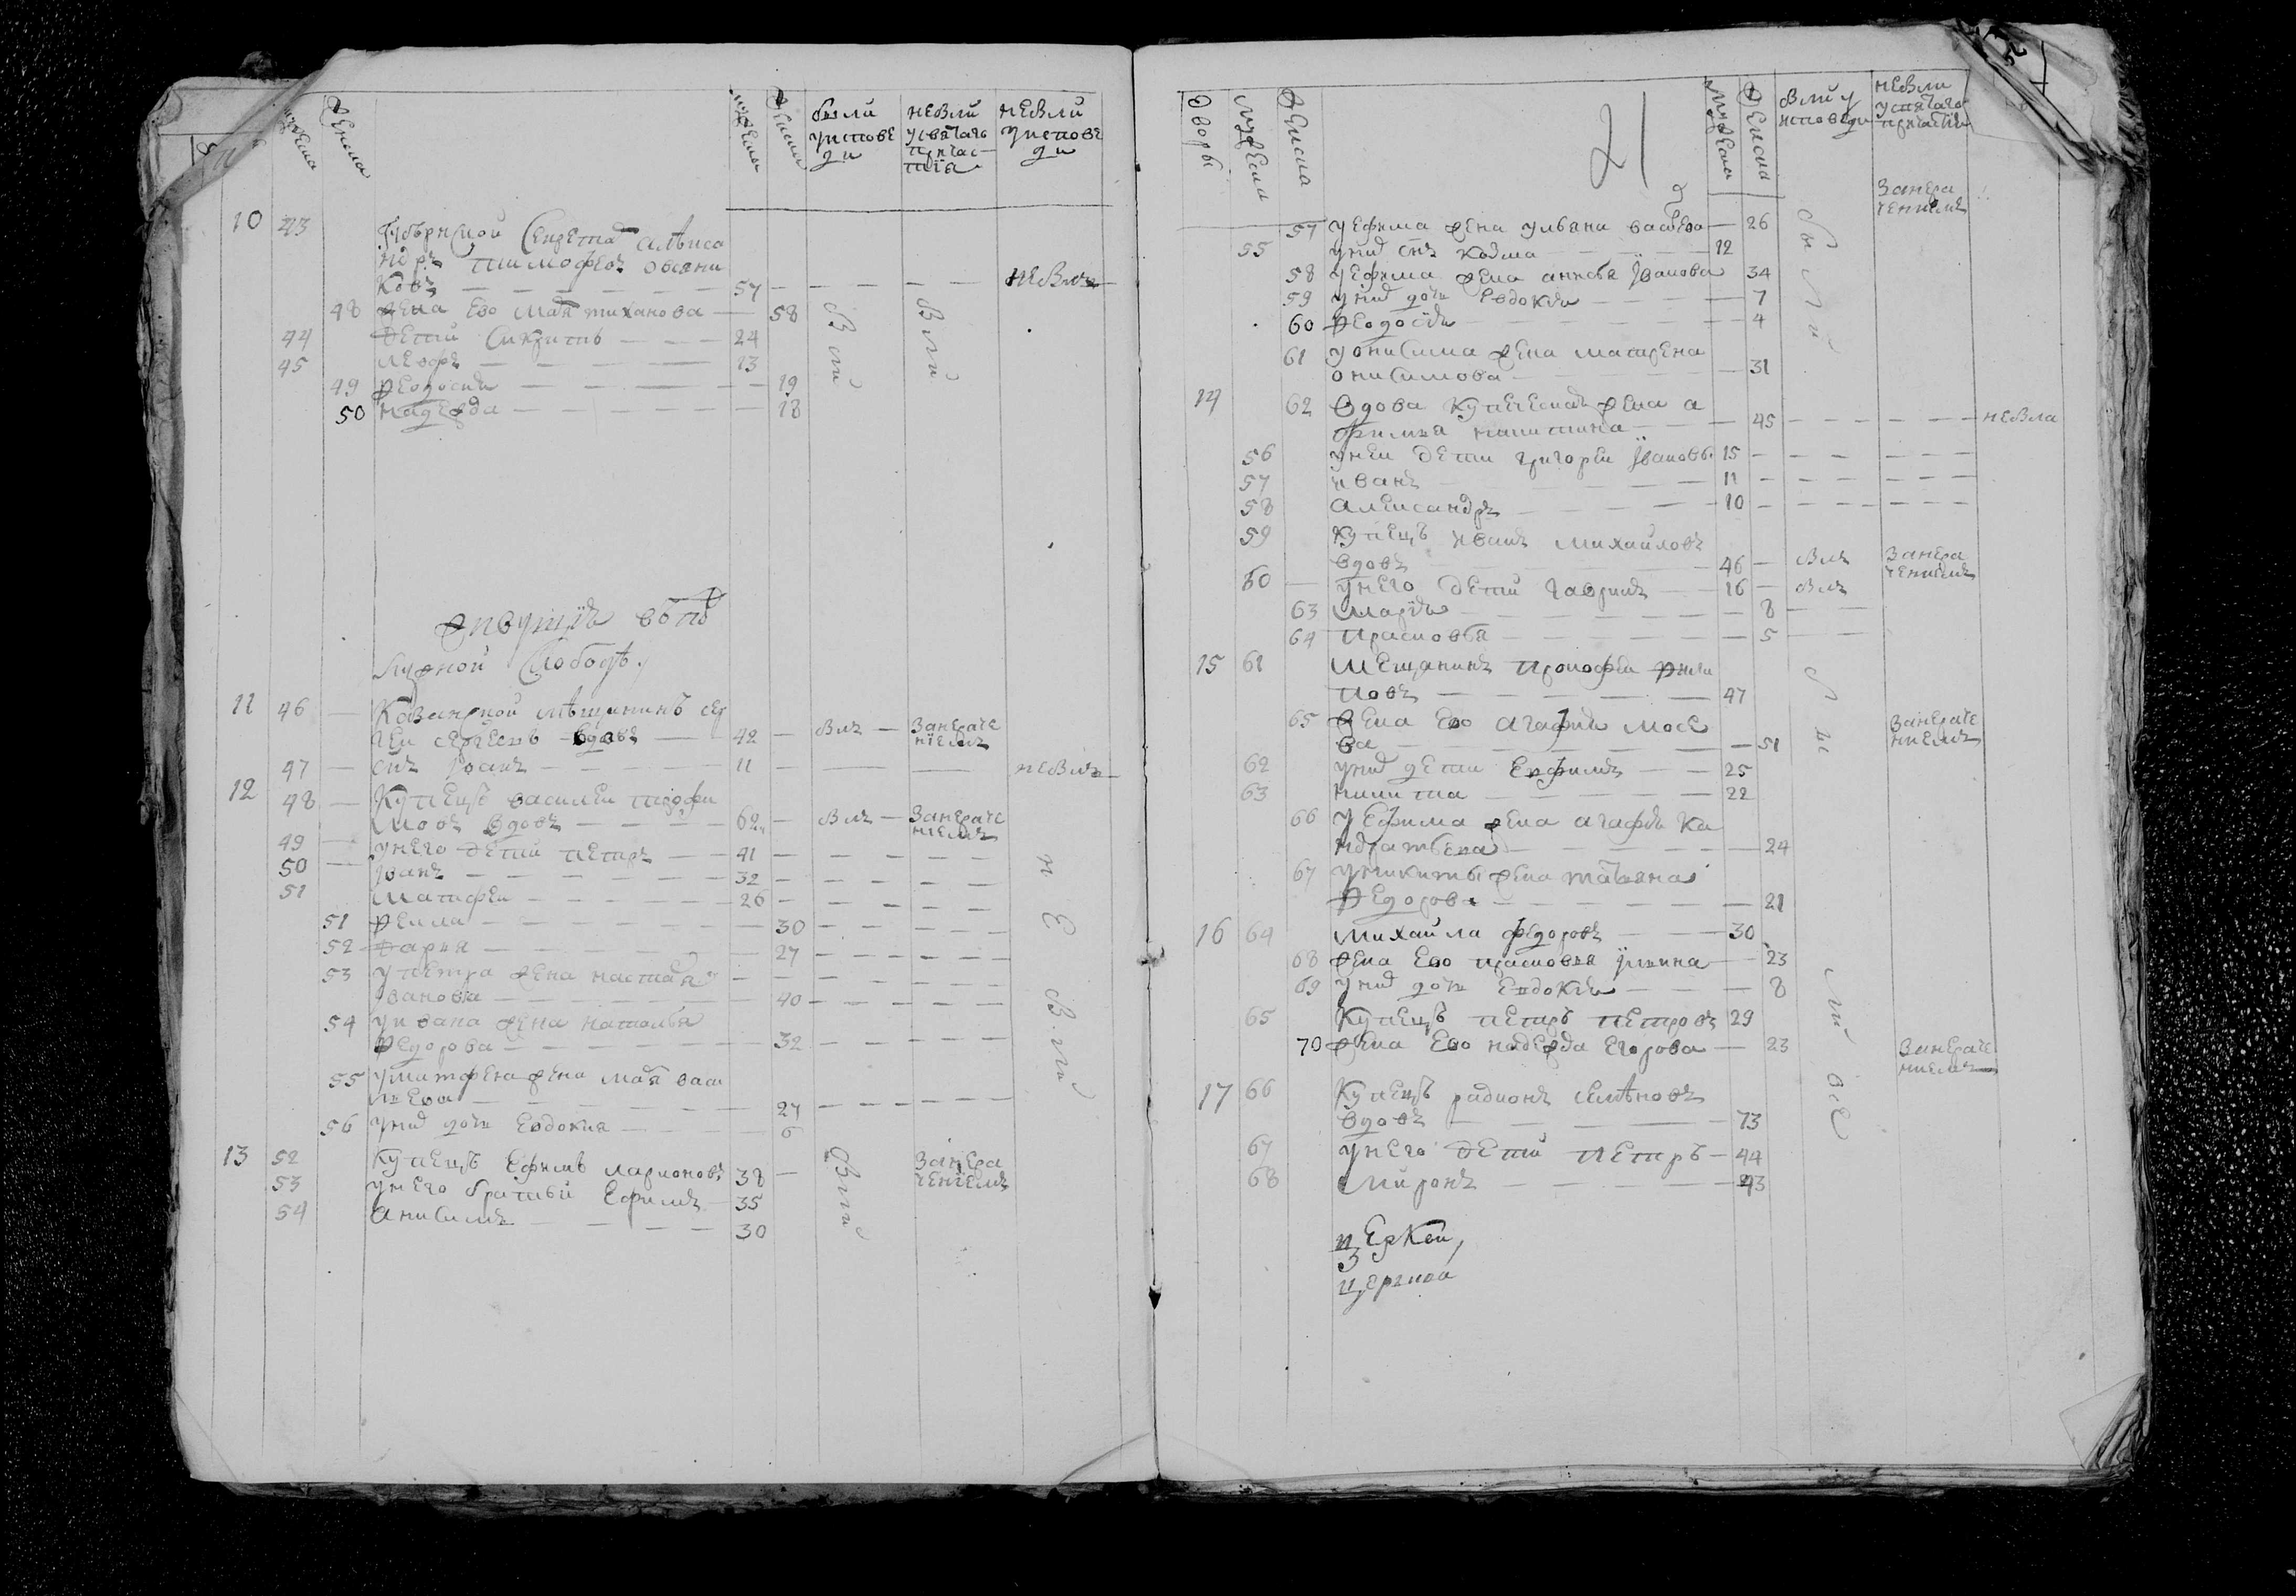 мужеска женска мужеска женска были у исповеди небыли у святаго причастия небыли у исповеди
10 43 Губернской Секретарь алекса
ндръ тимофеевъ овсяни
ковъ 57 небылъ
48 жена Ево маря 58
44 дети Никита 24
45 леофъ 13
49 Феодосия 19
50 надежда 18
были были
живущия в
Слободе
11 46 Казанской мещанинъ сер
геи сергеевъ вдовъ 42 былъ занераче
ниемъ
47 снъ Иванъ 11 небылъ
12 48 Купецъ василеи
вдовъ 62 былъ занераче
ниемъ
49 унего дети петръ 41
50 Иванъ 32
51 матфеи 26
51 Фекла 30
52 дария 27
53 упетра жена
Иванова 40
54 уивана жена наталья
Федорова 32
55 уматфея жена маря васи
льева 27
56 унихъ дочь Евдокия 6
небыли
13 52 Купецъ Ефимъ ларионовъ 38 занера
чениемъ
53 унего братьи Ефимъ 35
54 анисимъ 30
были
дворы мужеска женска 21 мужеска женска были у исповеди небыли у святаго причастия
занера
чениемъ
57 уефима жена ульяна васильева 26
55 унихъ снъ козма 12
58 уефима жена Иванова 34
59 унихъ дочь Евдокия 7
60 Феодосия 4
61 уонисима жена матрена
онисимова 31
были
14 62 Вдова купеческая жена а
фимья никитина 45 небыла
56 унеи дети григореи Ивановъ 15
57 иванъ 11
58 александръ 10
59 купецъ иванъ михайловъ
вдовъ 46 былъ занера
чениемъ
60 унего дети гаврилъ 16 былъ
63 мария 8
64 прасковья 5
15 61 мещанинъ прокофеи фили
повъ 47
65 жена Ево агафия мосе
ва 51 занераче
ниемъ
62 унихъ дети Ефимъ 25
63 никита 22
66 уефима жена агафия ка
ндратьева 24
67 уникиты жена татьяна
Федорова 21
16 64 михайла федоровъ 30
68 жена Ево прасковья ильина 23
69 унихъ дочь Евдокия 8
65 Купецъ петръ петровъ 29
70 жена Ево надежда егорова 23 занераче
ниемъ
17 66 купецъ радионъ семеновъ
вдовъ 73
67 унего дети петръ 44
68 миронъ 43
церкви
3